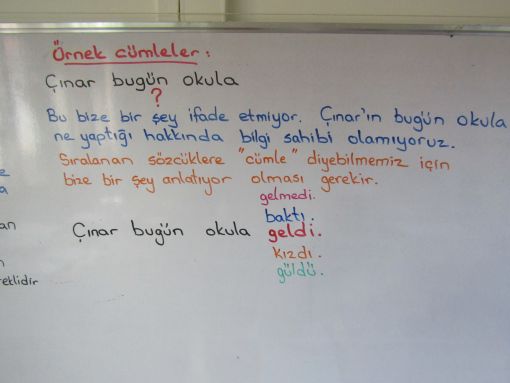 Örnek cümleler:
Çınar bugün okula
?
Bu bize bir şey ifade etmiyor. Çınar'ın bugün okula
ne yaptığı hakkında bilgi sahibi olamıyoruz.
Sıralanan sözcüklere "cümle" diyebilmemiz için
bize bir şey anlatıyor olması gerekir.
gelmedi.
baktı.
Çınar bugün okula geldi.
kızdı.
güldü.